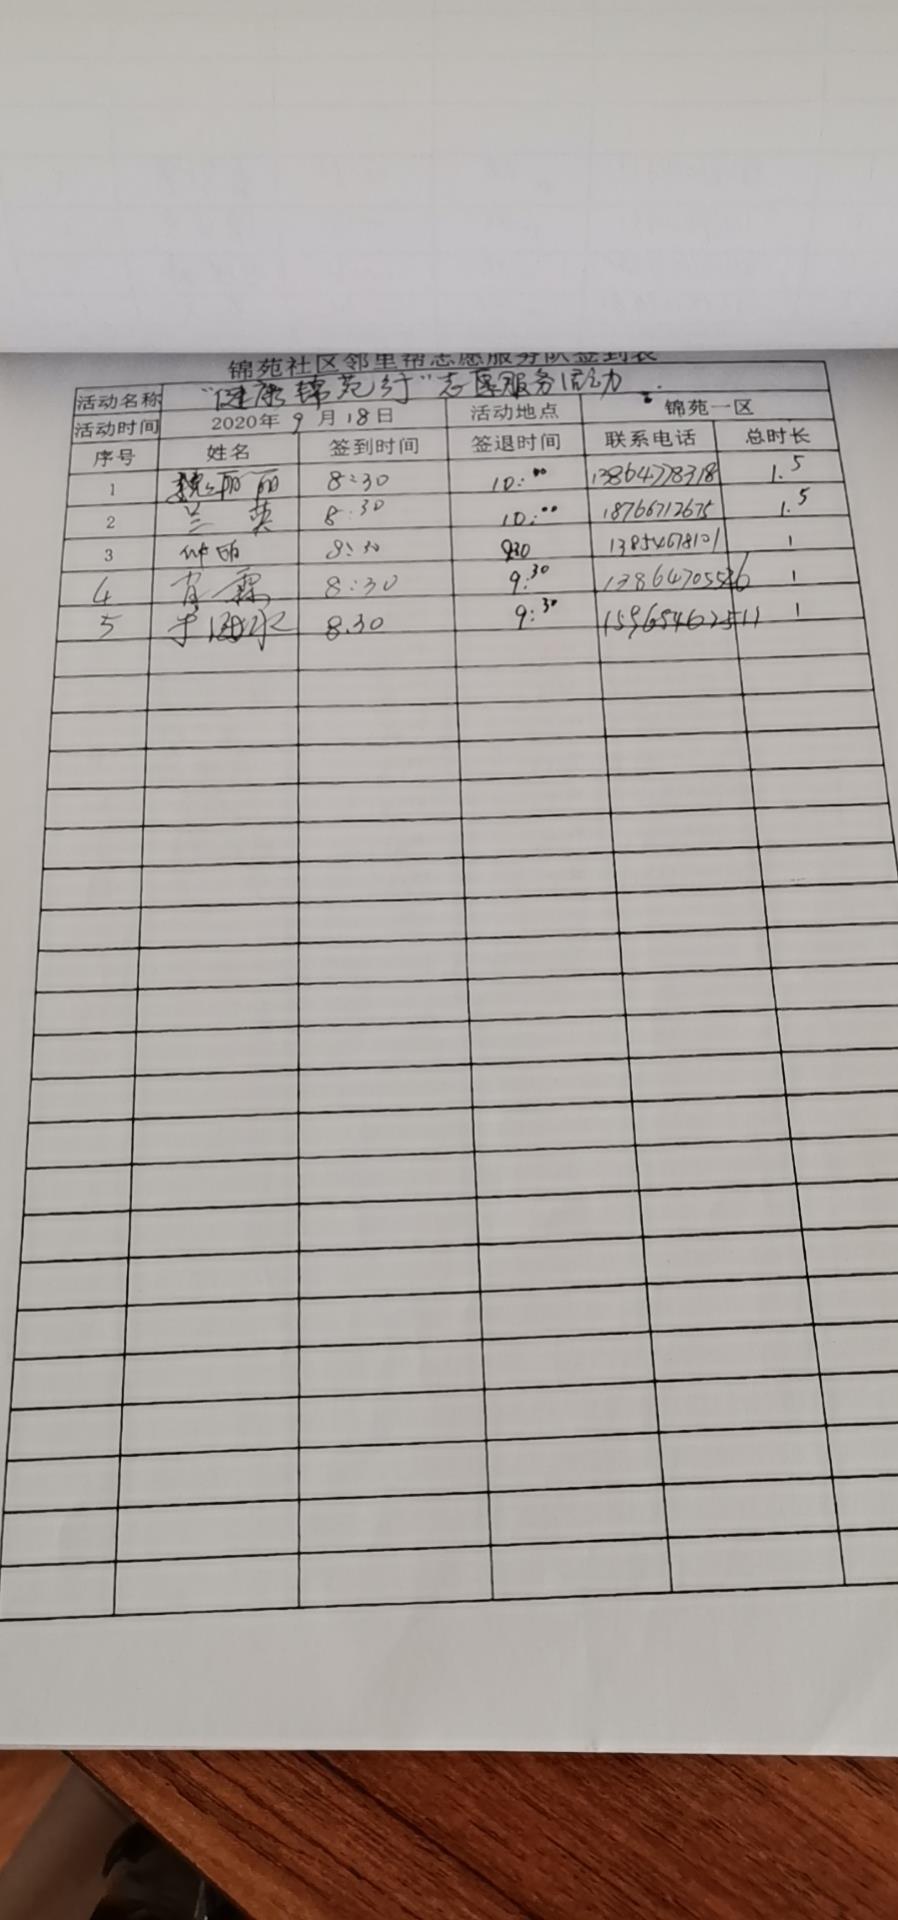 锦苑社区邻里帮志愿服务队签到表
活动名称 "健康锦苑行"志愿服务活动
活动时间 2020年9月18日 活动地点 锦苑一区
序号 姓名 签到时间 签退时间 联系电话 总时长
1 魏丽丽 8:30 10:00 13864778318 1.5
2 兰英 8:30 10:00 18766712675 1.5
3 8:30 930 13854678101 1
4 肖霖 8:30 9:30 1
5 8.30 9:30 1